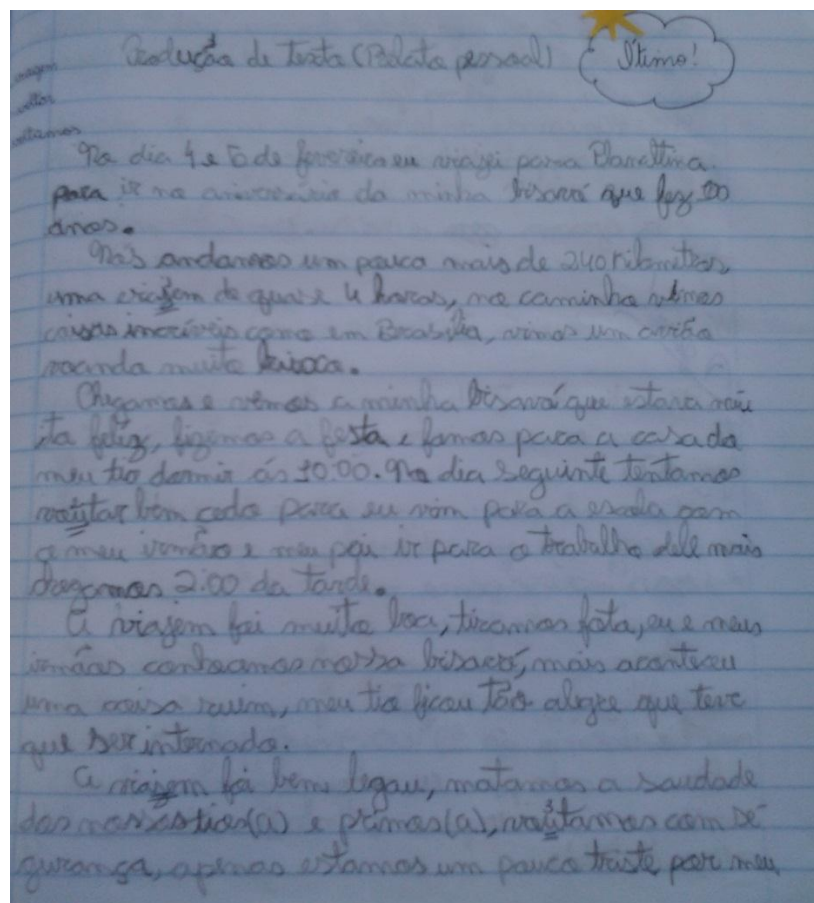 Produção de texto (Relato pessoal) Ótimo!
viagem
voltar
voltamos
No dia 4 e 5 de fevereiro eu viagei para Planaltina
para ir no aniversário da minha bisavó que fez 100
anos.
Nós andamos um pouco mais de 240 kilometros,
uma viajem de quase 4 horas, no caminho vimos
coisas incríveis como em Brasília, vimos um avião
voando muito baixo.
Chegamos e vimos a minha bisavó que estava mui
ta feliz, fizemos a festa e fomos para a casa do
meu tio dormir ás 10:00. No dia seguinte tentamos
voutar bem cedo para eu vim para a escola com
o meu irmão e meu pai ir para o trabalho dele mais
chegamos 2:00 da tarde.
A viajem foi muito boa, tiramos fota, eu e meus
irmãos conhecemos nossa bisavó, mais aconteceu
uma coisa ruim, meu tio ficou tão alegre que teve
que ser internado.
A viajem foi bem legau, matamos a saudade
dos nossos tios(a) e primos(a), voutamos com se
gurança, apenas estamos um pouco triste por meu